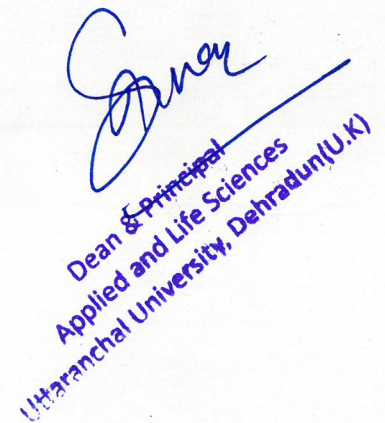 Dean & Principal
Applied and Life Sciences
Uttaranchal University, Dehradun(U.K)